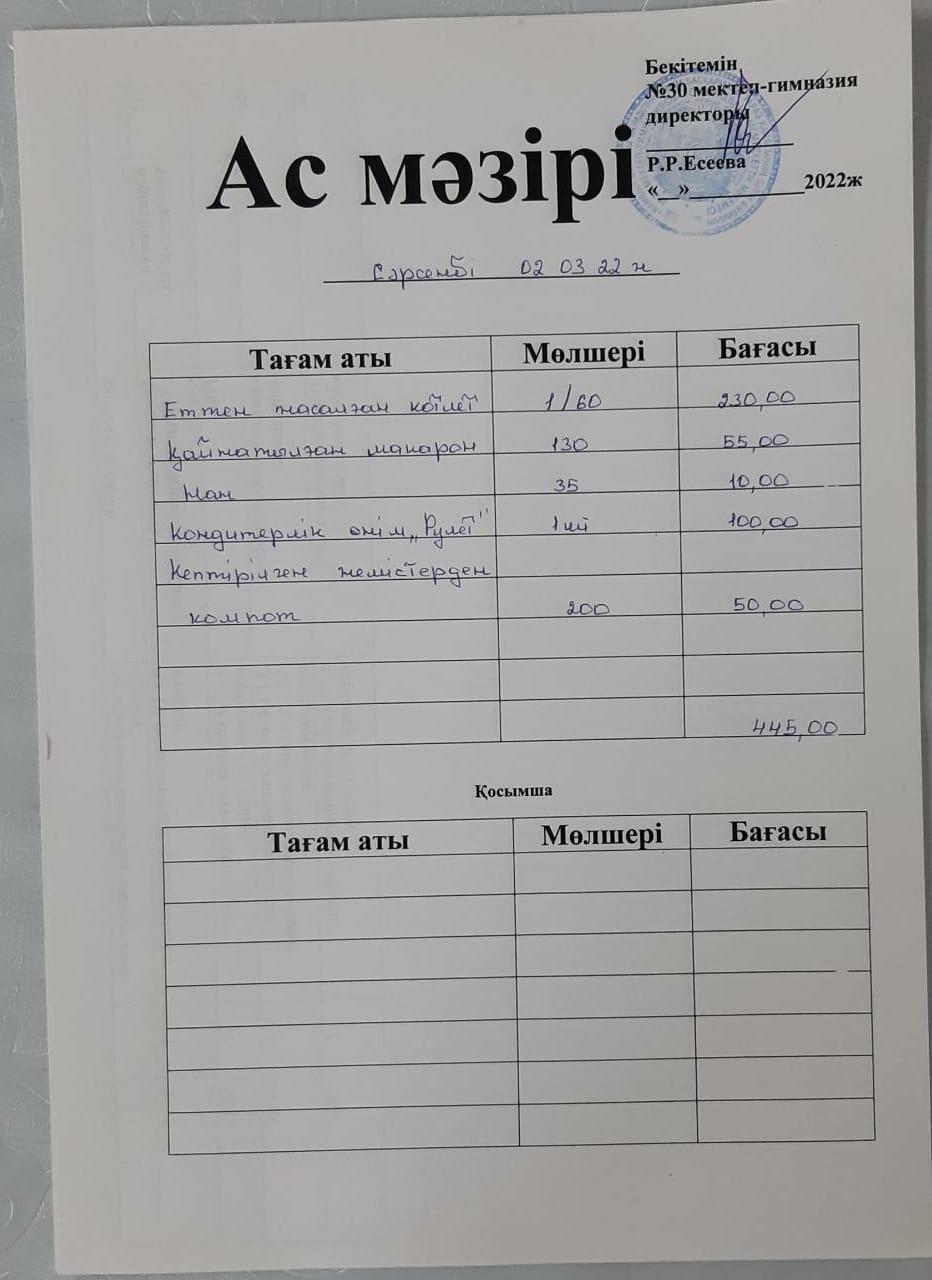 Бекітемін
№30 мектеп-гимназия
директоры
Р.Р.Есеева
«__»___________2022ж
Ас мәзірі
Сәрсенбі 02 03 22 ж
Тағам аты Мөлшері Бағасы
Еттен жасалған котлет 1/60 230,00
Қайнатылған макарон 130 55,00
Нан 35 10,00
Кондитерлік өнім „Рулет" 1 ш 100,00
Кептірілген жемістерден
компот 200 50,00
445,00
Қосымша
Тағам аты Мөлшері Бағасы